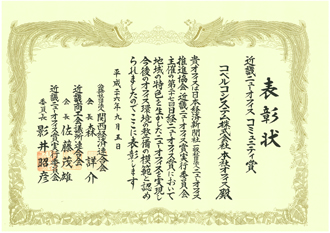 表彰状
近畿ニューオフィス コミュニティ賞
コベルコシステム株式会社 本社オフィス殿
貴オフィスは日本経済新聞社 一般社団法人ニューオフィス
推進協会 近畿ニューオフィス賞実行委員会
主催の第二十七回日経ニューオフィス賞において
地域の特色を生かしたニューオフィスを実現し
今後のオフィス環境の整備の模範と認め
られましたのでここに表彰します
平成二十六年九月五日
公益社団法人 関西経済連合会
会長 森 詳介
近畿商工会議所連合会
会長 佐藤茂雄
近畿ニューオフィス賞実行委員会
委員長 影井昭彦